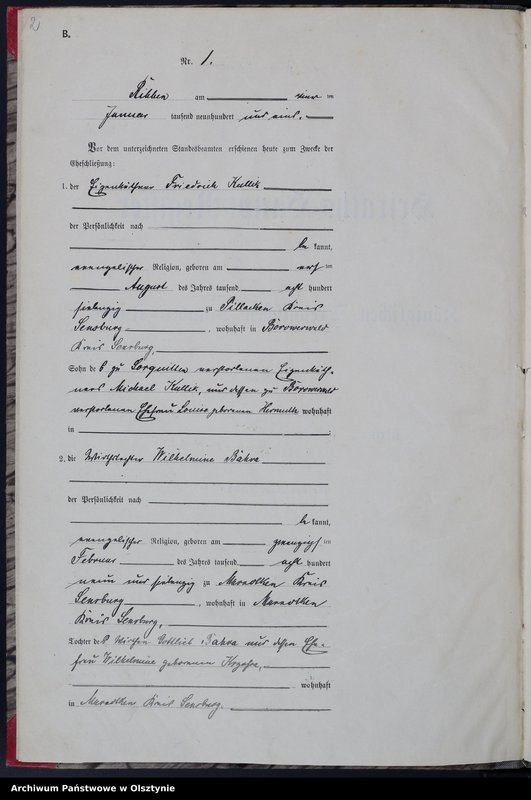 2
B.
Nr. 1.
Ribben am vier ten
Januar tausend neunhundert und eins.
Vor dem unterzeichneten Standesbeamten erschienen heute zum Zwecke der
Eheschließung:
1. der Eigenkäthner Friedrich Kullik
der Persönlichkeit nach
be kannt,
evangelischer Religion, geboren am ten
August des Jahres tausend acht hundert
siebenzig zu Pillacken Kreis
Sensburg, wohnhaft in Borowerwald
Kreis Sensburg,
Sohn des zu Sorquitten verstorbenen Eigenkäth-
ners Michael Kullik, und dessen zu Borowerwald
verstorbenen Ehefrau geborenen wohnhaft
in
2. die Wirthstochter Wilhelmine Bahra
der Persönlichkeit nach
be kannt,
evangelischer Religion, geboren am zwanzigs ten
Februar des Jahres tausend acht hundert
neun und siebenzig zu Maradtken Kreis
Sensburg, wohnhaft in Maradtken
Kreis Sensburg,
Tochter des Wirthen Gottlieb Bahra und dessen Ehe-
frau Wilhelmine geborenen
wohnhaft
in Maradtken Kreis Sensburg.
Archiwum Państwowe w Olsztynie